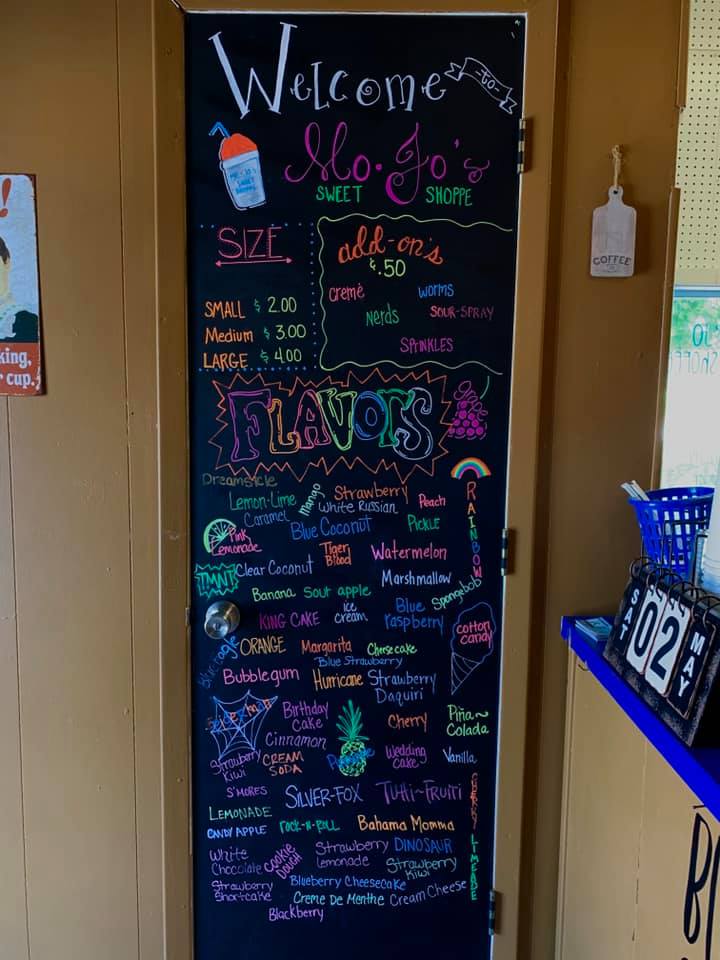 Welcome
-to-
Mo.Jo's
SWEET SHOPPE
SIZE
SMALL $ 2.00
Medium $ 3.00
LARGE $ 4.00
add-on's
$.50
cremé worms
nerds SOUR-SPRAY
SPRINKLES
FLAVORS
Dreamsicle
Lemon-Lime Mango Strawberry Peach
Caramel White Russian
RAINBOW
Pink Lemonade Blue Coconut Pickle
Tiger Blood Watermelon
TMNT Clear Coconut Marshmallow
Banana Sour apple Spongebob
KING CAKE Ice Cream Blue raspberry cotton candy
ORANGE Margarita Cheesecake
Blue Strawberry
Bubblegum Hurricane Strawberry Daquiri
Birthday Cake Cherry Piña~ Colada
Cinnamon
Strawberry Kiwi CREAM SODA Wedding Cake Vanilla
S'MORES SILVER-FOX Tutti~Fruiti
LEMONADE
CANDY APPLE ROCK-N-ROLL Bahama Momma
LIMEADE
White Chocolate COOKIE DOUGH Strawberry Lemonade DINOSAUR
Strawberry Kiwi
Strawberry Shortcake Blueberry Cheesecake
Creme De Menthe Cream Cheese
Blackberry
COFFEE
!
king,
cup.
SAT 02 MAY
JO